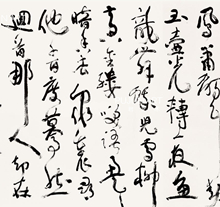 鳳簫聲動
玉壺光轉一夜魚
龍舞蛾兒雪柳
黃金縷笑語盈盈
暗香去眾裏尋
他千百度驀然
迴首那人卻在